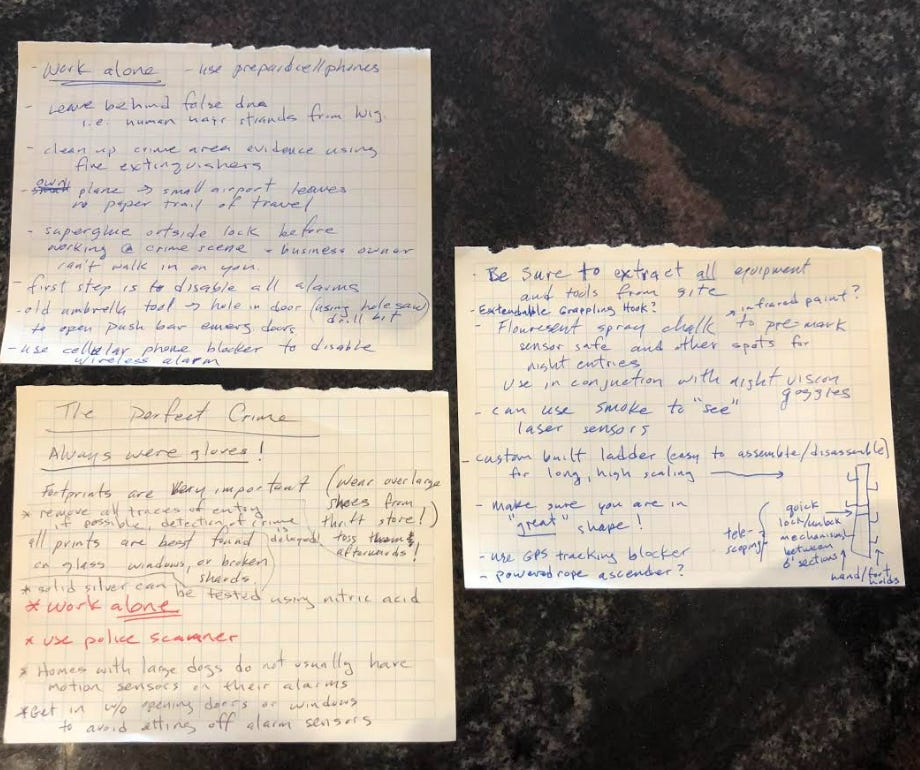 - Work alone - use prepaid cellphones
- Leave behind false dna
i.e. human hair strands from wig.
- clean up crime area evidence using
fire extinguishers
- own plane → small airport leaves
no paper trail of travel
- superglue outside lock before
working @ crime scene - business owner
can't walk in on you.
- first step is to disable all alarms
- old umbrella tool → hole in door (using holesaw)
drill bit
to open push bar emerg doors
- use cellular phone blocker to disable
wireless alarm
The Perfect Crime
Always were gloves!
Footprints are very important (wear overlarge
shoes from
thrift store!)
toss them
afterwards!
* remove all traces of entry
if possible, detection of crime is
delayed
all prints are best found
on glass windows, or broken
shards.
* solid silver can be tested using nitric acid
* work alone
* use police scanner
* Homes with large dogs do not usually have
motion sensors on their alarms
* Get in w/o opening doors or windows
to avoid etting off alarm sensors
- Be sure to extract all equipment
and tools from site
- Extendable Grappling Hook?
→ infrared paint?
- Flouresent spray chalk to pre-mark
sensor safe and other spots for
night entries
Use in conjuction with night vision
goggles
- can use smoke to "see"
laser sensors
- custom built ladder (easy to assemble/disassemble)
for long, high scaling →
- make sure you are in
"great" shape!
- use GPS tracking blocker
- powered rope ascender?
tele-
scoping
quick
lock/unlock
mechanism
between
6' sections
hand/foot
holds